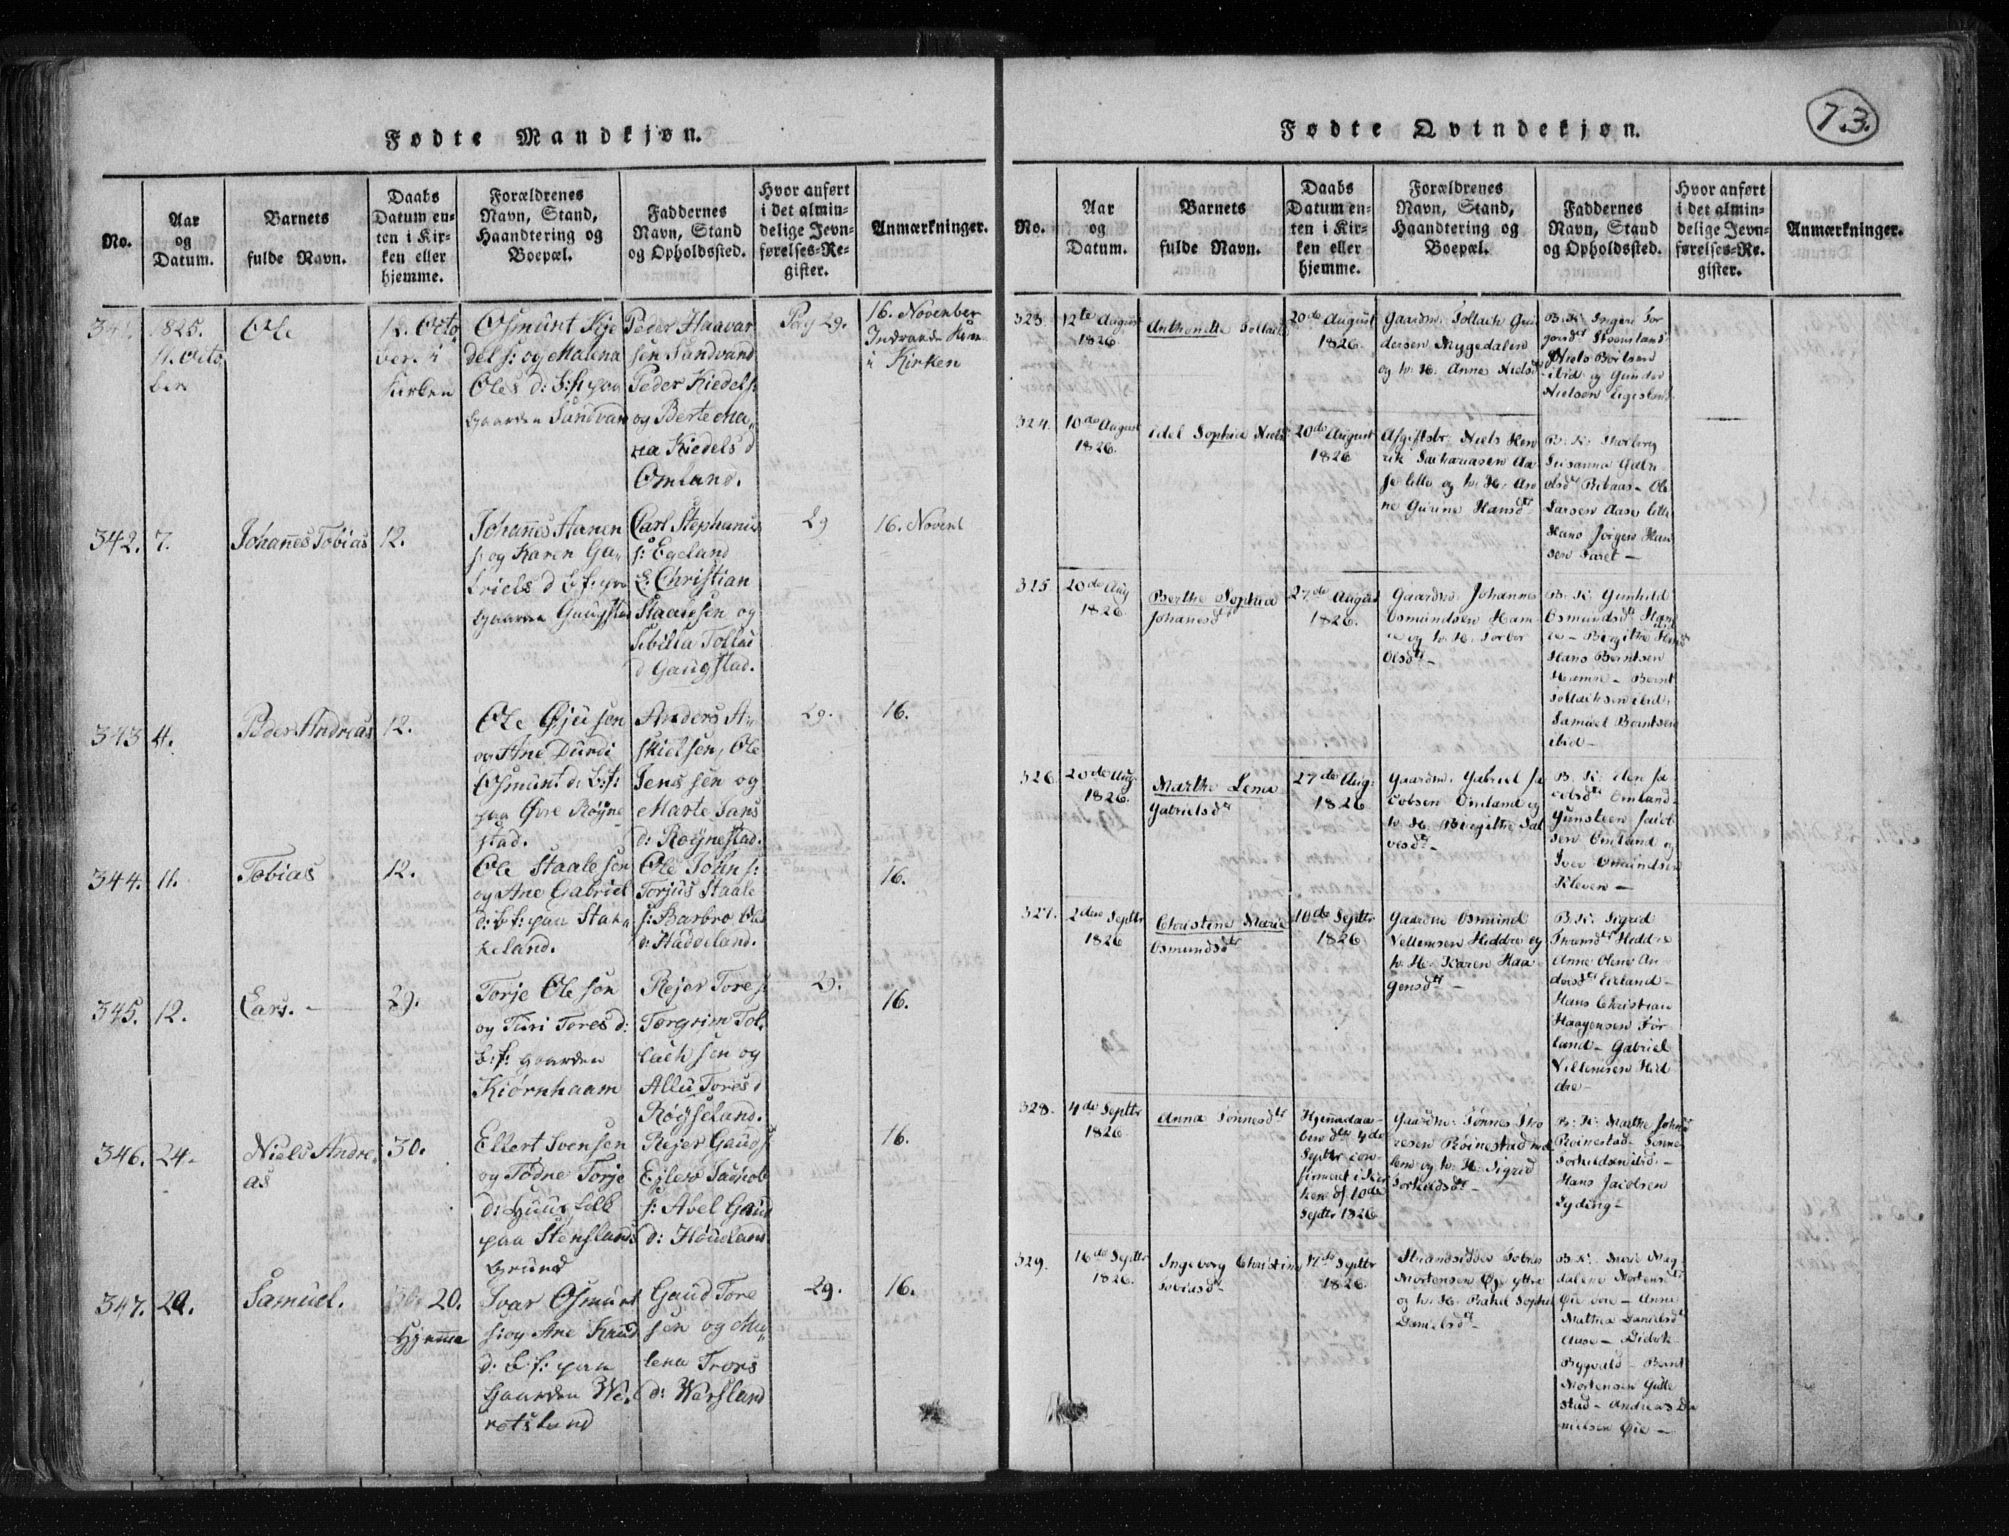 73.
Fødte Mandkjøn.
No.
Aar
og
Datum.
Barnets
fulde Navn.
Daabs
Datum en-
ten i Kir-
ken eller
hjemme.
Forældrenes
Navn, Stand,
Haandtering og
Boepæl.
Faddernes
Navn, Stand
og Opholdssted.
Hvor anført
i det almin-
delige Jevn-
førelses-Re-
gister.
Anmærkninger.
341.
1825.
11. Octo
ber
Ole
12. Octo
ber i
Kirken
Osmunt Kje
del s: og Malena
Oles d: b: f: paa
Gaarden Sandvan
Peder Haavar
sen Sandvand
Peder Kiedel s:
og Berte Ma„
ria Kiedels d
Omland.
Pag 29.
16. November
i Kirken
342.
7.
Johanes Tobias
12.
Johanes Aanen
s: og Karen Ga„
briels d b: f: paa
Gaarden Gaugstad
Carl Stephanus
s: Egeland
Christian
Staansen og
Sibilla Tollac
d Gaugstad.
29
16. Novemb
343
4.
Peder Andreas
12.
Ole Øju sen
og Ane Durdi
Osmunt d: b: f:
paa Øvre Røyne
stad.
Anders A„
skiel sen, Ole
Jens sen og
Marte Lars
d: Røynestad.
29.
16.
344.
11.
Tobias
12.
Ole Staale sen
og Ane Gabriel
d: b: f: paa Stak„
keland.
Ole John s:
Torjus Staale
s: Barbro Ole
d: Staddeland.
16.
345.
12.
Lars. –
29.
Torje Ole sen
og Turi Tores d:
b: f: Gaarden
Kiørnhaam
Rejer Tore s:
Torgrim Tol.
lach sen og
Tores d
Røgseland.
29.
16.
346.
24.
Niels Andre„
as
30.
Ellert Svensen
og Todne Torje
d: Huus folk
paa Stenslands
Grund
Rejer Gaut s:
Ejlert Jacob
s: Abel Gaut
d: Høueland
16.
347.
20.
Samuel.
20.
Hjemme
Ivar Osmunt
s: og Ane Knud
d: b: f: paa
Gaarden We„
rotsland
Gaud Tore
sen og Ma„
lena Trors
d: Warsland
29.
16.
Fødte Qvindekjøn.
No.
Aar
og
Datum.
Barnets
fulde Navn.
Daabs
Datum en-
ten i Kir-
ken eller
hjemme.
Forældrenes
Navn, Stand,
Haandtering og
Boepæl.
Faddernes
Navn, Stand
og Opholdssted.
Hvor anført
i det almin-
delige Jevn-
førelses-Re-
gister.
Anmærkninger.
323.
12te August
1826.
Anthonette Tollachs
20de August
1826.
Gaardm. Tollach Gun
dersen Mygedalen
og h. H. Anne Nielsdtr
B. K. Inger Tor
Steensland
Niels Boilsen
ibid og Gunder
Nielsen Egeland
324.
10de August
1826.
Edel Sophia Niels
20de August
1826
Afgiftsbr. Niels Hen
rik Sachariasen Aa
se lille og h. H. An
ne Gurine Hansdtr
B. K. Thalberg
Susanna Gabri
elsdtr Ribaas – Ole
Larsen Aase lille
Hans Jørgen Han
sen Faret –
325
20de Aug
1826
Berthe Sophia
Johanesdtr
27de August
1826.
Gaardm. Johannes
Osmundsen Ham
re og h. H. Torbor
Olsdtr –
B. K. Gunhild
Osmundsdtr Ham
re – Birgithe Hansdtr
Hans Berntsen
Hamre – Bernt
Tollachsen ibid.
Samuel Berntsen
ibid –
326.
20de Aug:
1826.
Marthe Lena
Gabrielsdtr
27de Aug:
1826.
Gaardm. Gabriel Ja
cobsen Omland og
h. H. Birgithe Sal
vesdtr –
B. K. Elen Ja
cobsdtr Omland –
Gunsteen Jacob
sen Omland og
Iver Osmundsen
Kleven –
327.
2den Septbr
1826
Christine Marie
Osmundsdtr
10de Septbr
1826
Gaardm Osmund
Vellumsen Hiddre og
h. H. Karen Haa
gensdtr –
B. K. Sigrid
Hiddre
Anne Olene An
dersdtr Eieland –
Hans Christian
Haagensen Før
land – Gabriel
Villumsen Hid
dre –
328.
4de Septbr
1826
Anna Tønnesdtr
Hjemedaa-
ben d. 4de
Septbr con-
firmeret i Kir
ken d. 10de
Septbr 1826
Gaardm. Tønnes To
resen Røinestad mel
lem og h. H. Sigrid
Torkildsdtr –
B. K. Marthe Johnsd
Røinestad – Tønnes
Torkildsen ibid. –
Hans Jacobsen
Lyding –
329.
16de Septbr
1826.
Ingeborg Christine
Tobiasdtr
17de Septbr
1826.
Strandsidder Tobias
Mortensen Øie yttre
og h. H. Rahel Sophie
Danielsdtr –
B. K. Marie Mag
dalene Mortensdtr
Øie øvre – Anne
Mathia Danielsdtr
Aase – Didrik
Rygvold – Bernt
Mortensen Gulle
stad – Andreas Da
nielsen Øie –